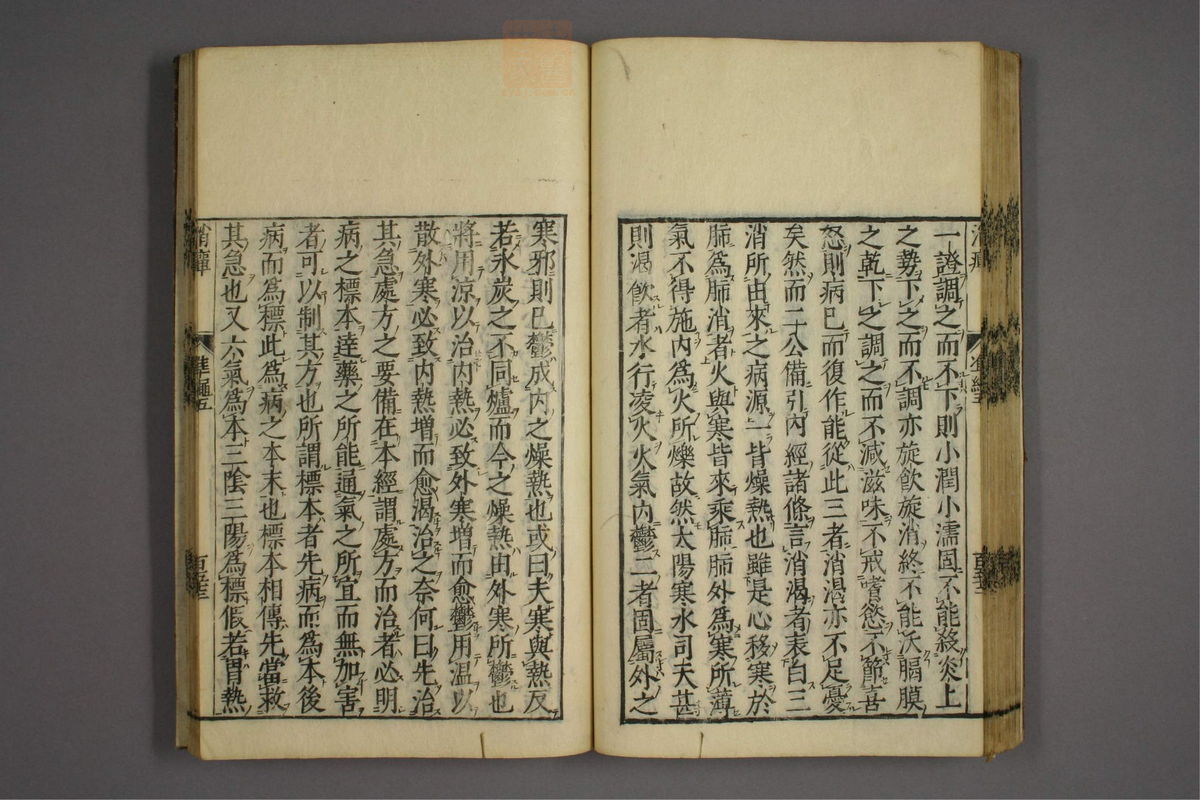 一證調之而不下則小潤小濡固不能殺炎上
之勢下之而不調亦旋飲旋消終不能沃膈膜
之乾下之調之而不減滋味不戒嗜慾不節喜
怒則病已而復作能從此三者消渴亦不足憂
矣然而二公備引内經諸條言消渴者表白三
消所由來之病源一皆燥熱也雖是心移寒於
肺為肺消者火與寒皆來乘肺肺外為寒所薄
氣不得施内為火所爍故然太陽寒水司天甚
則渴飲者水行凌火火氣内鬱二者固屬外之
寒邪則已鬱成内之燥熱也或曰夫寒與熱反
若氷炭之不同爐而今之燥熱由外寒所鬱也
將用涼以治内熱必致外寒增而愈鬱用温以
散外寒必致内熱增而愈渴治之奈何曰先治
其急處方之要備在本經謂處方而治者必明
病之標本達藥之所能通氣之所宜而無加害
者可以制其方也所謂標本者先病而為本後
病而為標此為病之本末也標本相傳先當救
其急也又六氣為本三陰三陽為標假若胃熱
消癉
準繩五